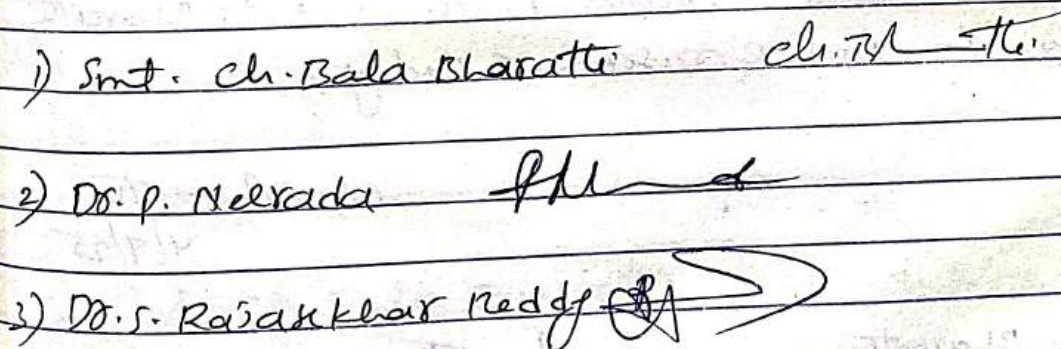 1) Smt. Ch. Bala Bharathi
2) Dr. P. Neerada
3) Dr. S. Rajasekhar Reddy